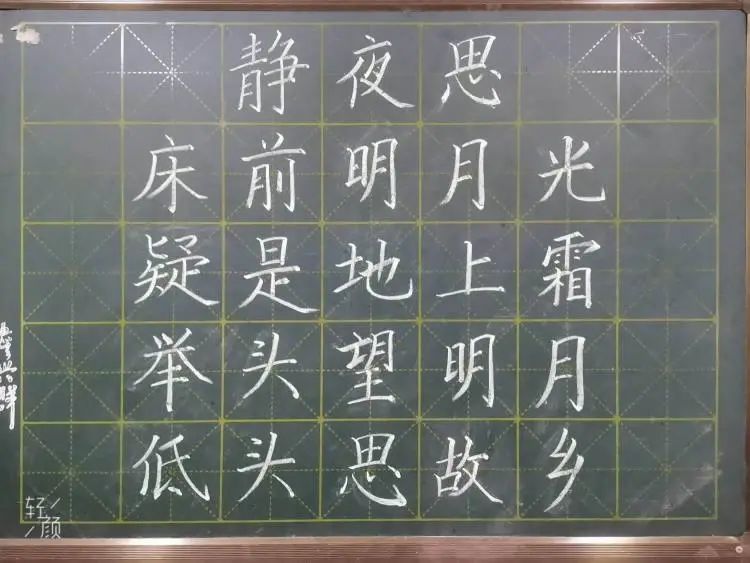 静夜思
床前明月光
疑是地上霜
举头望明月
低头思故乡
轻颜